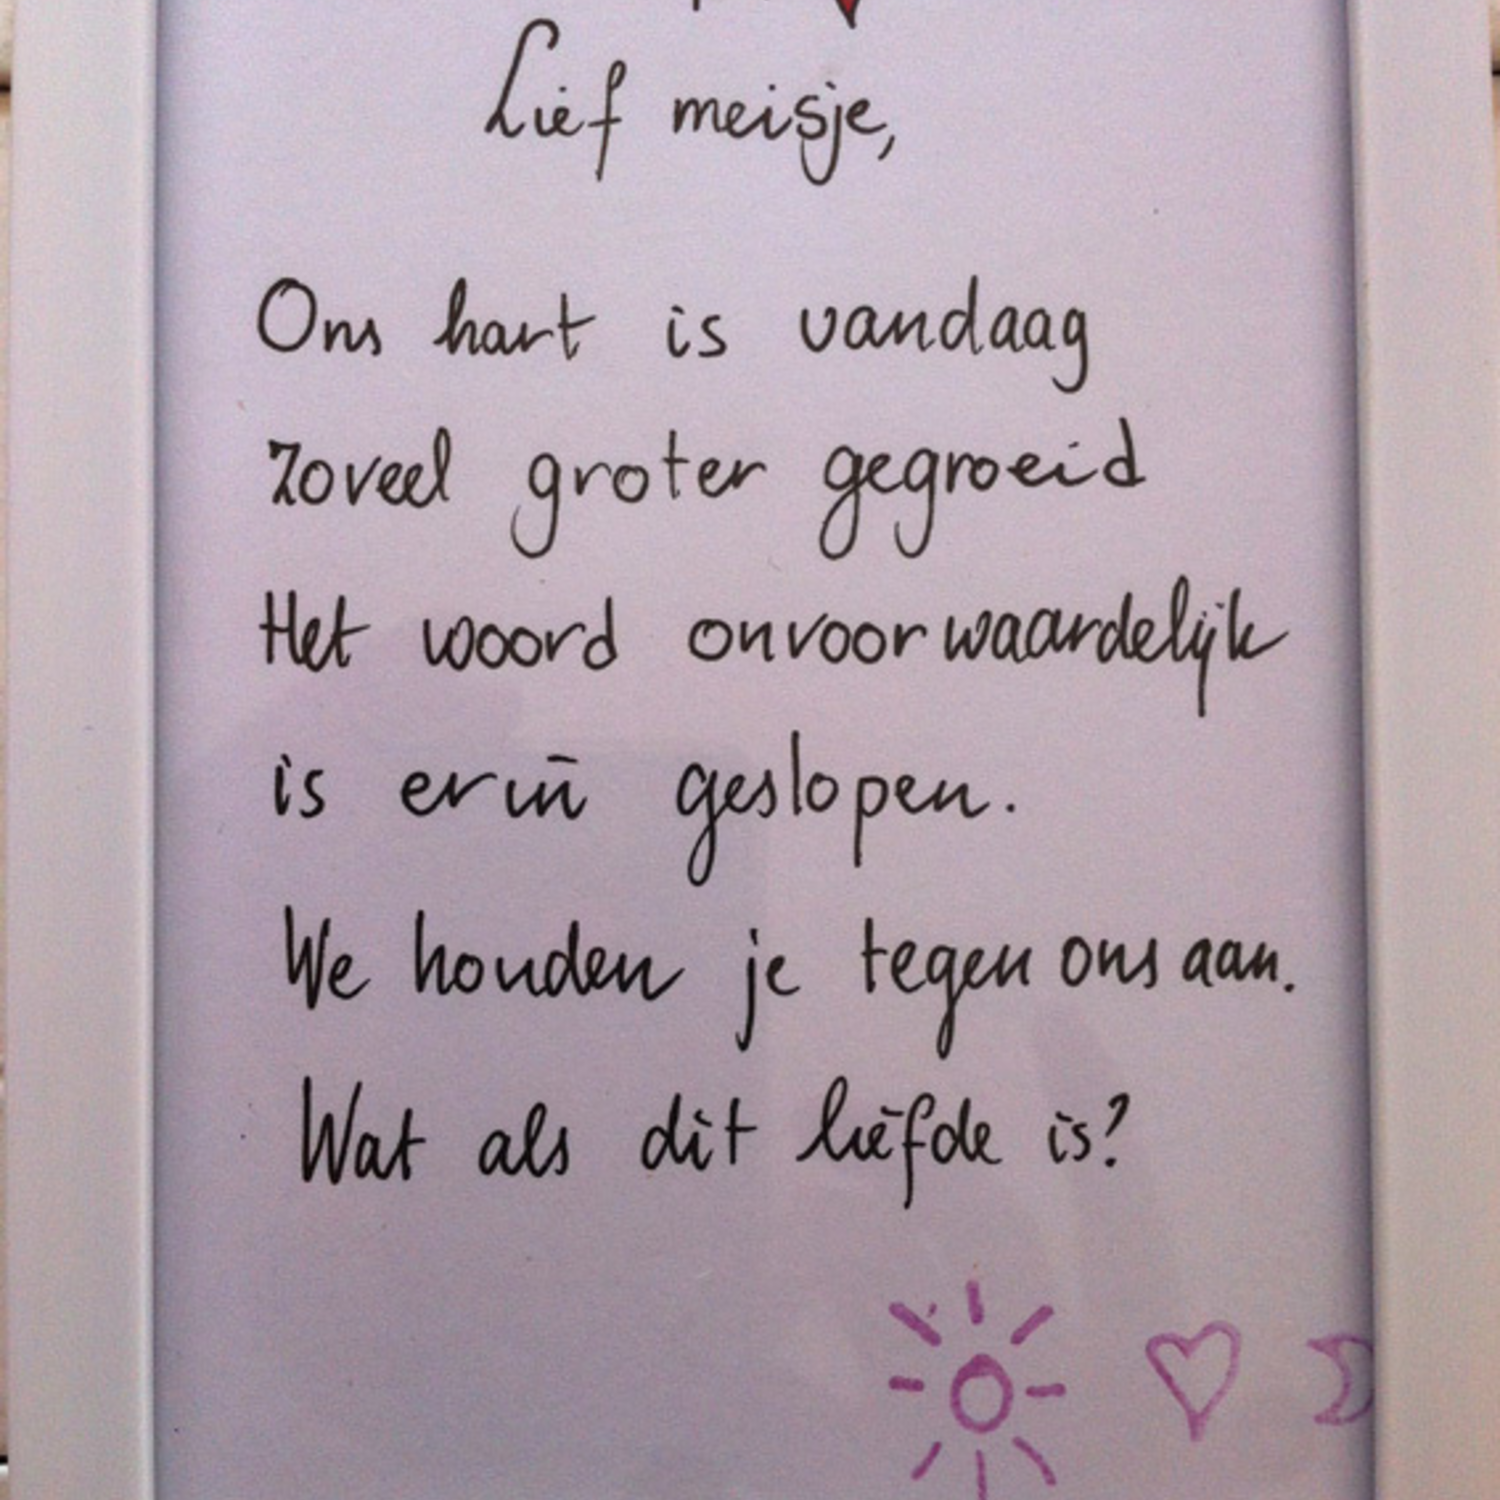 Lief meisje,
Ons hart is vandaag
zoveel groter gegroeid
Het woord onvoorwaardelijk
is erin geslopen.
We houden je tegen ons aan.
Wat als dit liefde is?